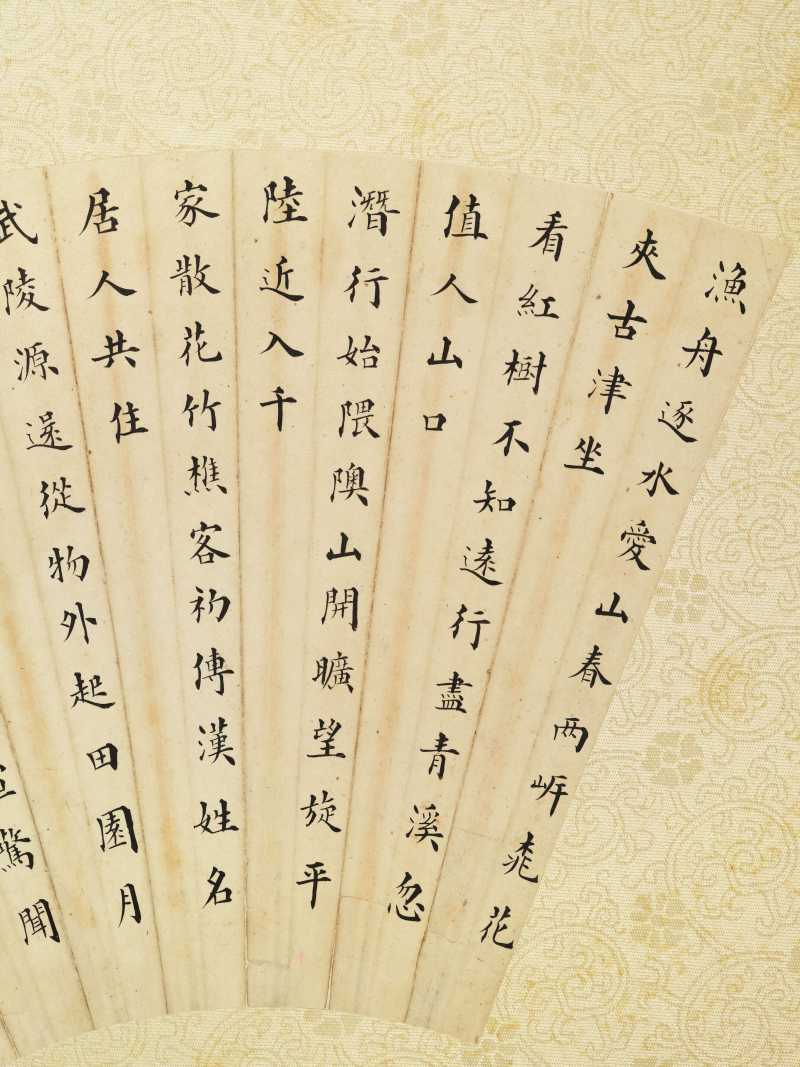 漁舟逐水愛山春两岍桃花
夾古津坐
看紅樹不知遠行盡青溪忽
值人山口
潛行始隈隩山開曠望旋平
陸近入千
家散花竹樵客初傳漢姓名
居人共住
武陵源還從物外起田園月
驚聞